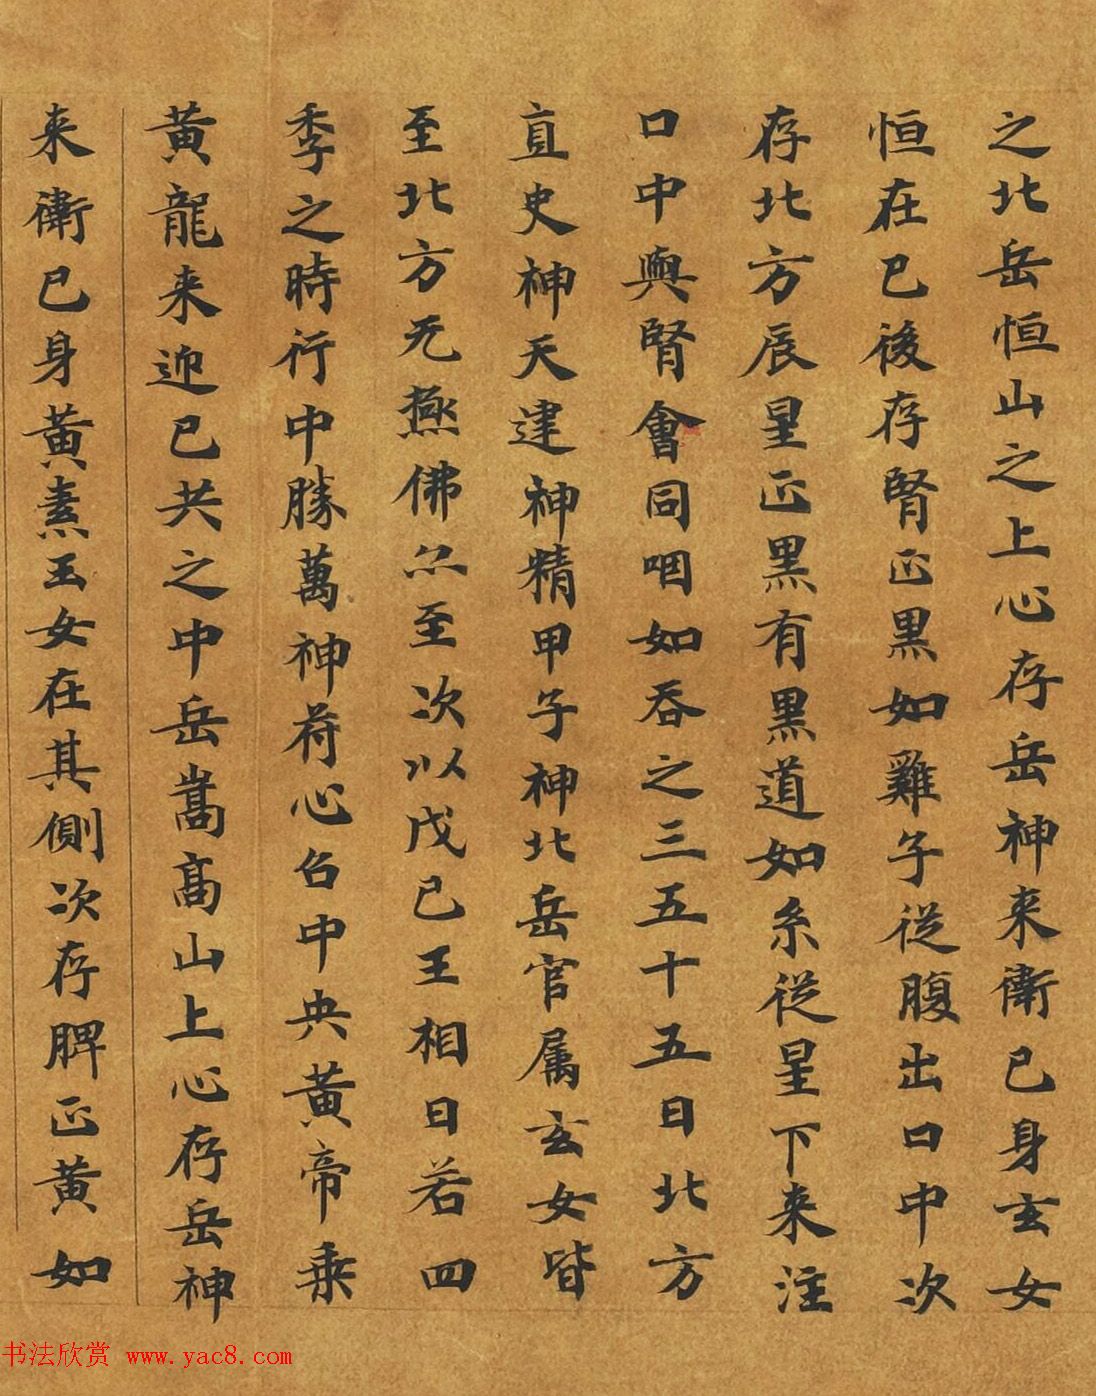 之北岳恒山之上心存岳神来衛已身玄女
恒在已後存腎正黑如雞子從腹出口中次
存北方辰星正黑有黑道如糸從星下来注
口中與腎會同咽如吞之三五十五日北方
直史神天建神精甲子神北岳官属玄女皆
至北方无極佛亦至次以戊已王相日若四
季之時行中勝萬神荷心召中央黃帝乗
黃龍来迎已共之中岳嵩髙山上心存岳神
来衛已身黃素玉女在其側次存脾正黃如
书法欣赏 www.yac8.com